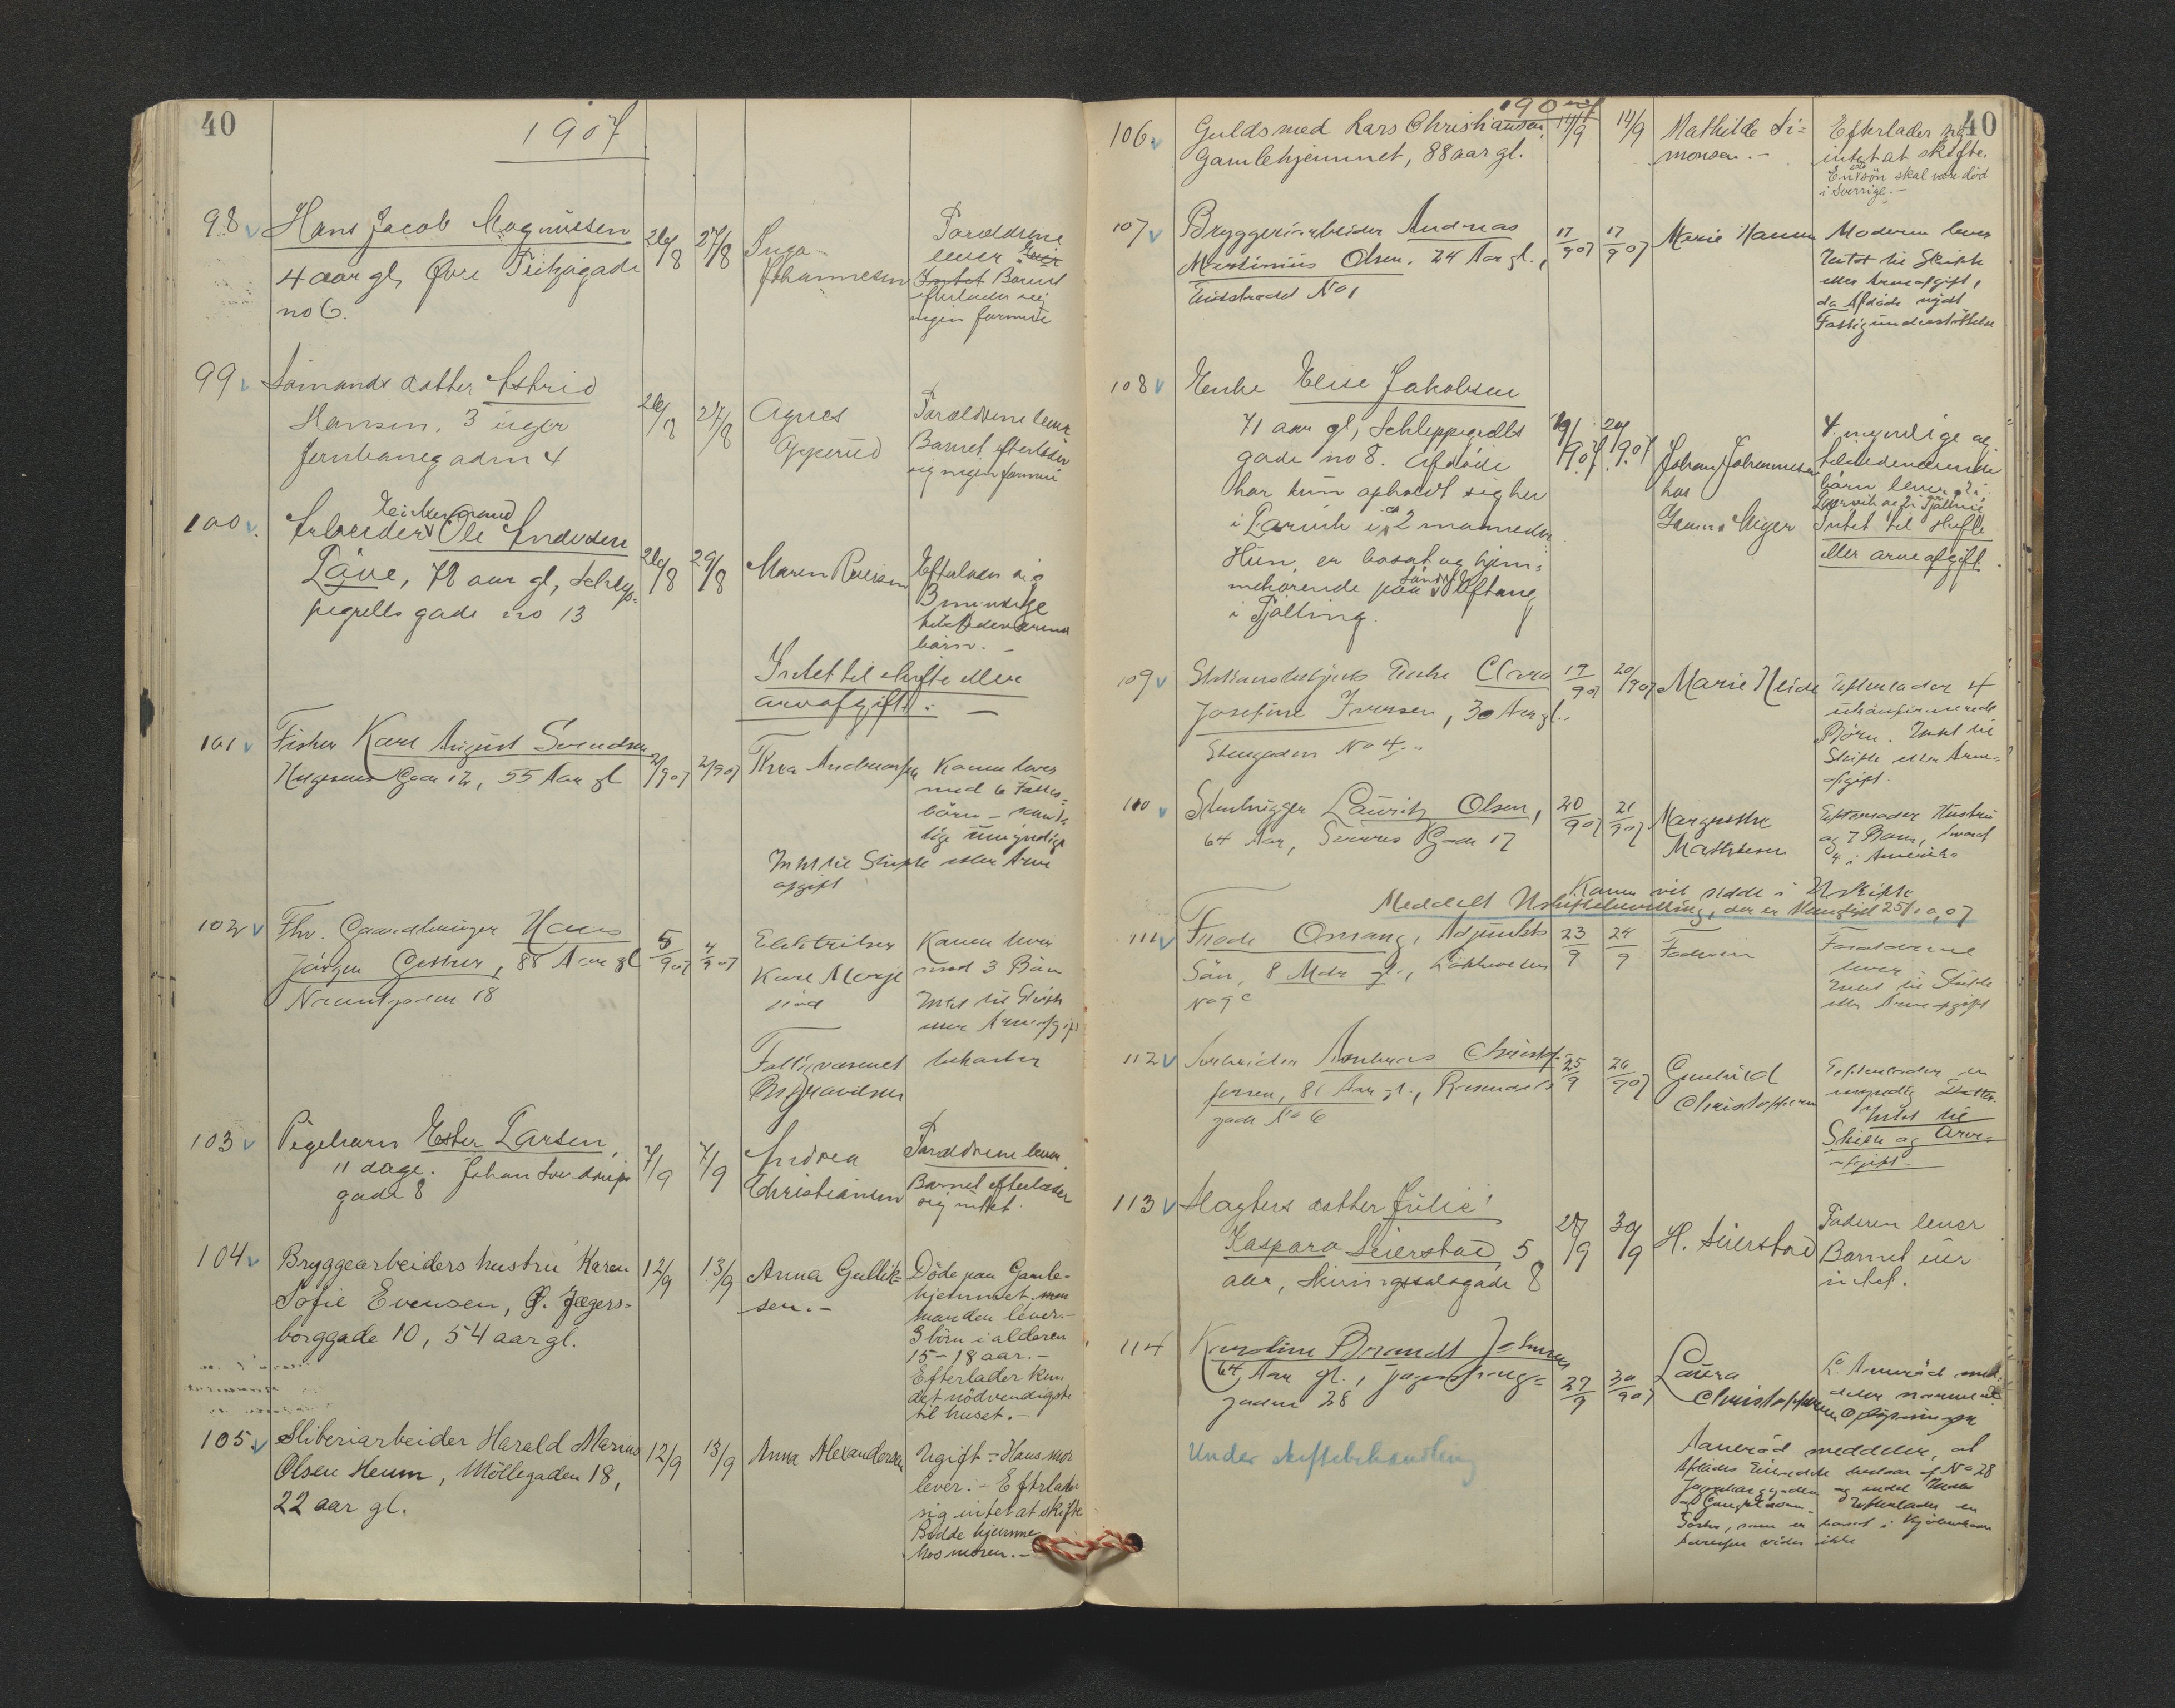 40
1907
98
Hans Jacob Magnussen
4 aar gl, Øvre Fritzøgade
no 6.
26/8
27/8
Inga
Johannesen
Forældrene
lever
Intet Barnet
efterlader sig
ingen formue
99
Sømands datter Astrid
Hansen, 3 uger
Jernbanegaden 4
26/8
27/8
Agnes
Opperud
Forældrene lever
Barnet efterlader
sig ingen formue
100
Enkemand
Arbeider Ole Andersen
Laave, 78 aar gl, Schlep-
pegrells gade no 13
26/8
29/8
Maren
Efterlader sig
3 myndige
tilstedeværende
børn. -
Intet til skifte eller
arveafgift. -
101
Fisker Karl August Svendsen
Gade 12, 55 Aar gl
2/9 07
2/9 07
Thea Andreassen
Konen lever
med 6 Fælles-
børn - samt-
lige umyndige
Intet til Skifte eller Arve
afgift
102
Fhv. Gaardbruger Hans
Jørgen Gether, 88 Aar gl
18
5/9 07
7/9 07
Elektriker
Karl
Konen lever
med 3 Børn
Intet til Skifte
eller Arveafgift
Fattigvæsenet bekoster
Begravelsen
103
Pigebarn Ester Larsen,
11 dage. Johan Sverdrups
gade 8
7/9
7/9
Andrea
Christiansen
Forældrene lever.
Barnet efterlader
sig intet.
104
Bryggearbeiders hustru Karen
Sofie Evensen, Ø. Jægers-
borggade 10, 54 aar gl.
12/9
13/9
Anna Gullik-
sen. -
Døde paa Gamle-
hjemmet. men
manden lever. -
3 børn i alderen
15-18 aar. -
Efterlader kun
det nødvendigste
til huset. -
105.
Sliberiarbeider Harald Marius
Olsen Heum, Møllegaden 18,
22 aar gl.
12/9
13/9
Anna Alexandersen
Ugift - Hans mor
lever. - Efterlader
sig intet at skifte
Bodde hjemme
hos moren. -
1907
40
106.
Guldsmed Lars Christiansen,
Gamlehjemmet, 88 aar gl.
14/9
14/9
Mathilde Si-
monsen. -
Efterlader sig
intet at skifte.
En søn skal være død
i Sverrige. -
107
Bryggeriarbeider Andreas
Martinius Olsen, 24 Aar gl.,
No 1
17/9 07
17/9 07
Marie Hansen
Moderen lever
Intet til Skifte
eller Arveafgift,
da Afdøde nydt
Fattigunderstøttelse
108
Enke Elise Jakobsen
71 aar gl, Schleppegrells
gade no 8. Afdøde
har kun opholdt sig her
i Larvik i ca 2 maaneder
Hun er bosat og hjem-
mehørende paa Søndre Oftang
i Tjølling.
19/9 07
20/9 07
Johan Johannesen
hos
4 myndige og
tilstedeværende
børn lever, 2 i
Larvik og 2 i Tjølling
Intet til skifte
eller arveafgift.
109
Enke Clara
Josefine Iversen, 30 Aar gl.
Stengaden No 4
19/9 07
20/9 07
Marie Heide
Efterlader 4
ukonfirmerede
Børn. Intet til
Skifte eller Arve-
afgift.
110
Stenhugger Lauritz Olsen,
64 Aar, Gade 17
20/9 07
21/9 07
Margrethe
Mathisen
Efterlader Hustru
og 7 Børn, hvoraf
4 i Amerika
Konen vil sidde i Uskifte
Meddelt Uskiftebevilling, der er thinglyst 25/10 07
111
Frode Omang, Adjunkts
Søn, 8 Mdr gl.,
No 9 c
23/9
24/9
Faderen
Forældrene
lever
Intet til Skifte
eller Arveafgift
112
Arbeider Andreas Christof-
fersen, 81 Aar gl.,
gade No 6
25/9
26/9 07
Gunhild
Christoffersen
Efterlader en
myndig Datter.
Intet til
Skifte og Arve-
afgift -
113
Slagters datter Julie
Kaspara Seierstad, 5
aar, Skiringssalsgade 8
28/9
30/9
H. Seierstad
Faderen lever
Barnet eier
intet.
114
Karoline Brandt Johnsen
64, Aar gl., Jegersborg-
gaden 28
27/9
30/9 07
Laura
Christoffersen
L. Aamrød med-
deler nærmere
Oplysninger
Under skiftebehandling
Aamrød meddeler, at
Afdødes Eiendele bestaar af No 28
Jegersborggaden og endel Indbo
Efterlader en
Søster, som er bosat i Kjøbenhavn
vides ikke